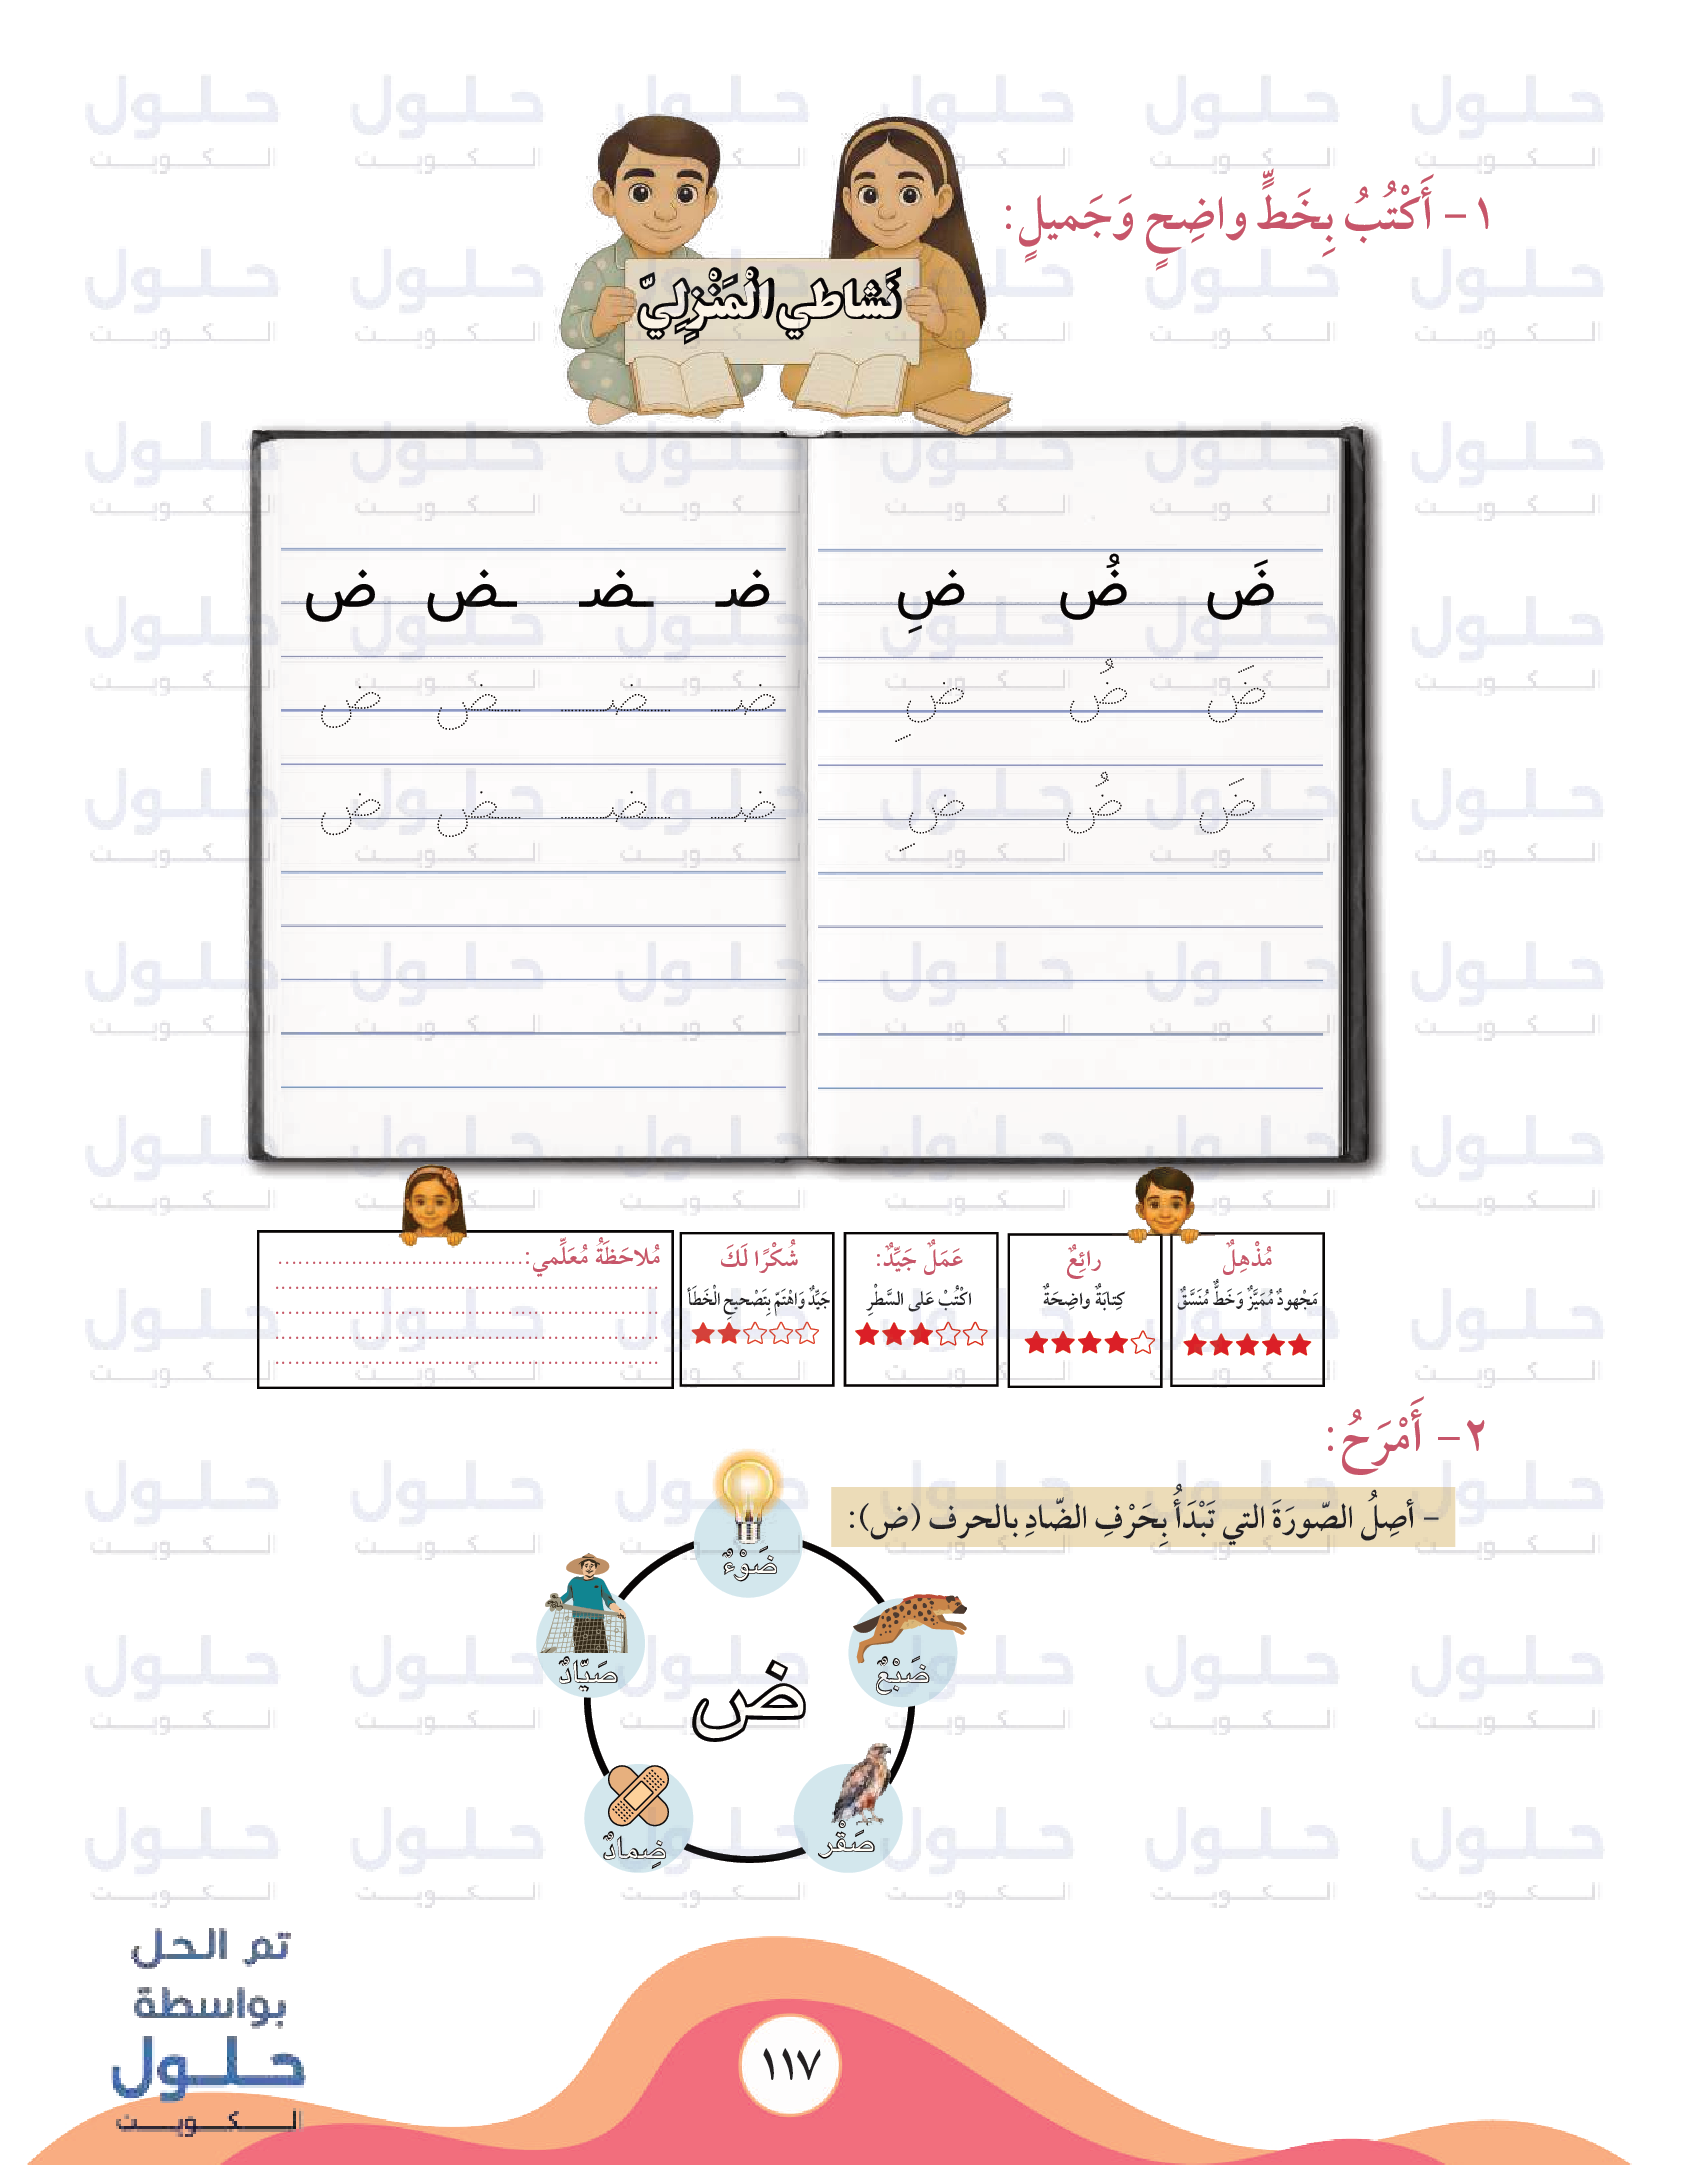 ١- أَكْتُبُ بِخَطٍّ واضِحٍ وَجَميلٍ:
نَشاطي الْمَنْزِلِيّ
ضَ ضُ ضِ
ضـ ـضـ ـض ض
ضَ ضُ ضِ
ضـ ـضـ ـض ض
ضَ ضُ ضِ
ضـ ـضـ ـض ض
مُذْهِلٌ
مَجْهودٌ مُمَيَّزٌ وَخَطٌّ مُنَسَّقٌ
رائِعٌ
كِتابَةٌ واضِحَةٌ
عَمَلٌ جَيِّدٌ:
اكْتُبْ عَلى السَّطْرِ
شُكْرًا لَكَ
جَيِّدٌ وَاهْتَمّ بِتَصْحيحِ الْخَطَأ
مُلاحَظَةُ مُعَلِّمي:
٢- أَمْرَحُ:
- أصِلُ الصّورَةَ التي تَبْدَأُ بِحَرْفِ الضّادِ بالحرف (ض):
ضَوْءٌ
ضَبْعٌ
صَيّادٌ
ض
صَقْر
ضِمادٌ
تم الحل
بواسطة
حلول
الكويت
١١٧